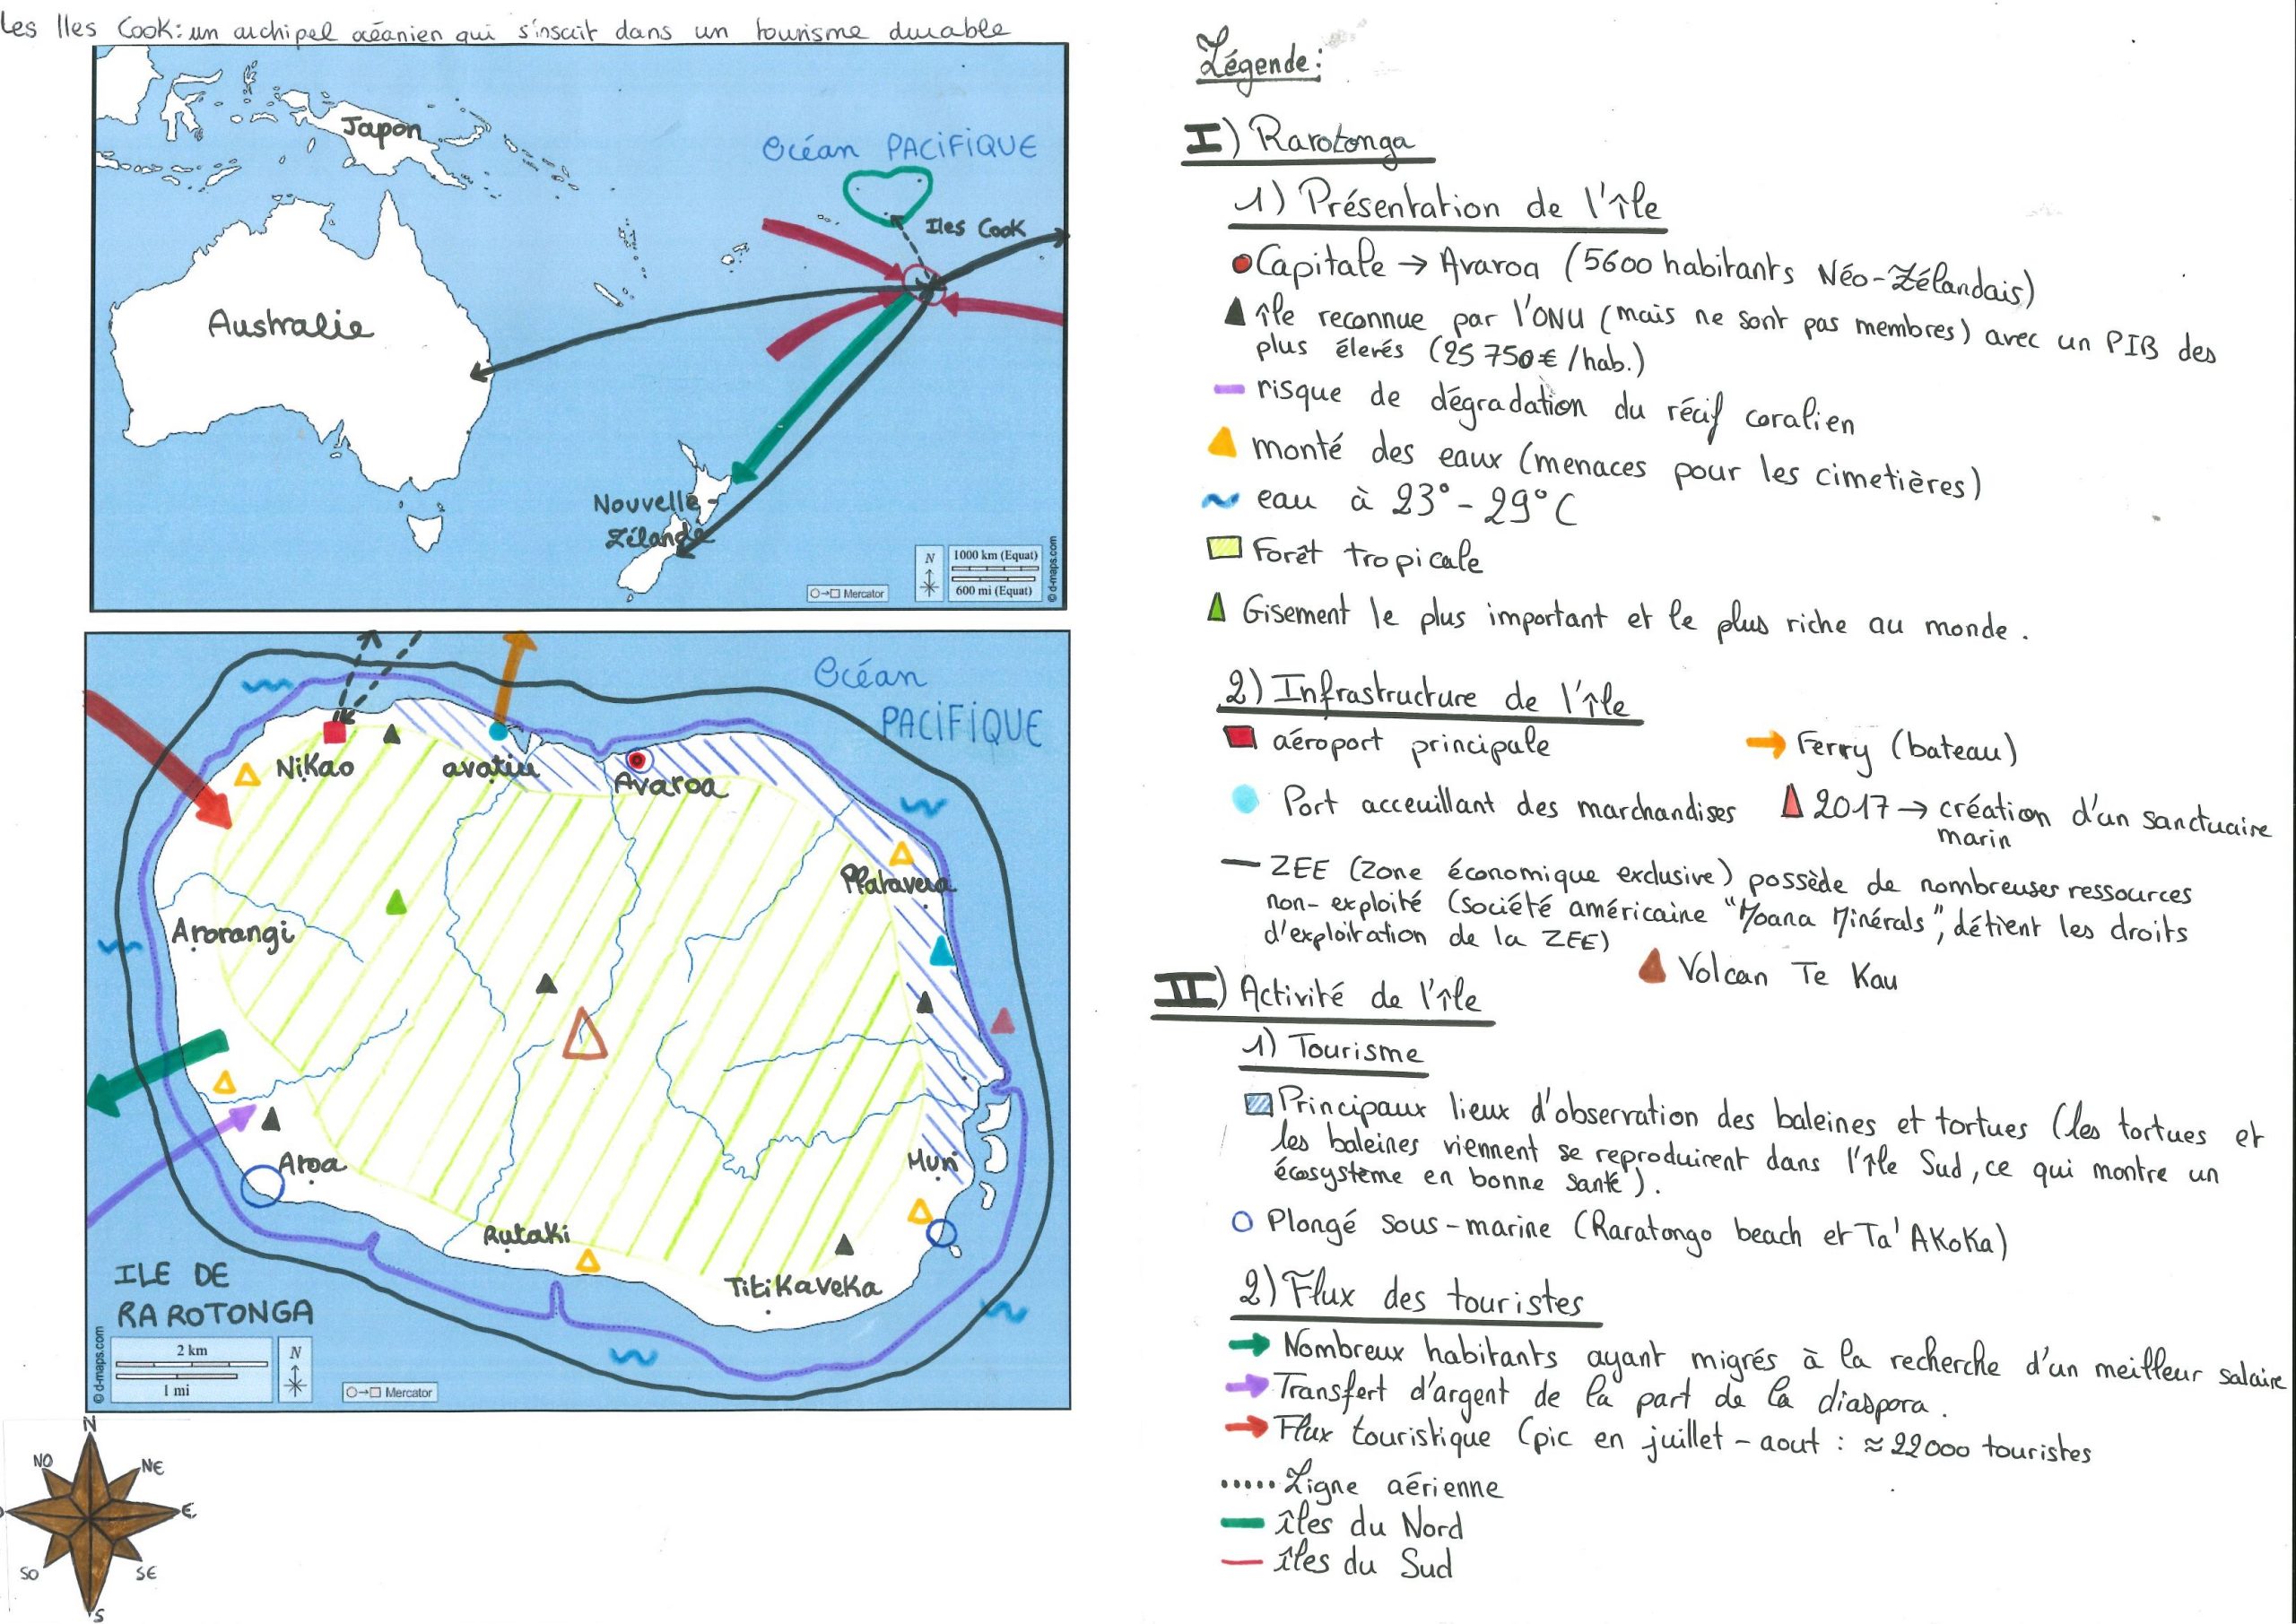 Les Iles Cook: un archipel océanien qui s'inscrit dans un tourisme durable
Japon
Océan PACIFIQUE
Iles Cook
Australie
Nouvelle-
Zélande
N
1000 km (Equat)
600 mi (Equat)
Mercator
© d-maps.com
Océan
PACIFIQUE
Nikao
avatiu
Avaroa
Arorangi
Aroa
Muri
Rutaki
Titikaveka
ILE DE
RAROTONGA
2 km
1 mi
N
Mercator
© d-maps.com
N
NO
NE
E
SO
SE
S
Légende:
I) Rarotonga
1) Présentation de l'île
Capitale → Avaroa (5600 habitants Néo-Zélandais)
île reconnue par l'ONU (mais ne sont pas membres) avec un PIB des
plus élevés (25 750€/hab.)
risque de dégradation du récif coralien
monté des eaux (menaces pour les cimetières)
eau à 23° - 29°C
Forêt tropicale
Gisement le plus important et le plus riche au monde.
2) Infrastructure de l'île
aéroport principale
Ferry (bateau)
Port acceuillant des marchandises
2017 → création d'un sanctuaire
marin
ZEE (zone économique exclusive) possède de nombreuses ressources
non-exploité (société américaine "Moana Minérals", détient les droits
d'exploitation de la ZEE)
Volcan Te Kau
II) Activité de l'île
1) Tourisme
Principaux lieux d'observation des baleines et tortues (les tortues et
les baleines viennent se reproduirent dans l'île Sud, ce qui montre un
écosystème en bonne santé).
Plongé sous-marine (Raratongo beach et Ta'AKoKa)
2) Flux des touristes
Nombreux habitants ayant migrés à la recherche d'un meilleur salaire
Transfert d'argent de la part de la diaspora.
Flux touristique (pic en juillet - aout : ≈22000 touristes
Ligne aérienne
îles du Nord
îles du Sud